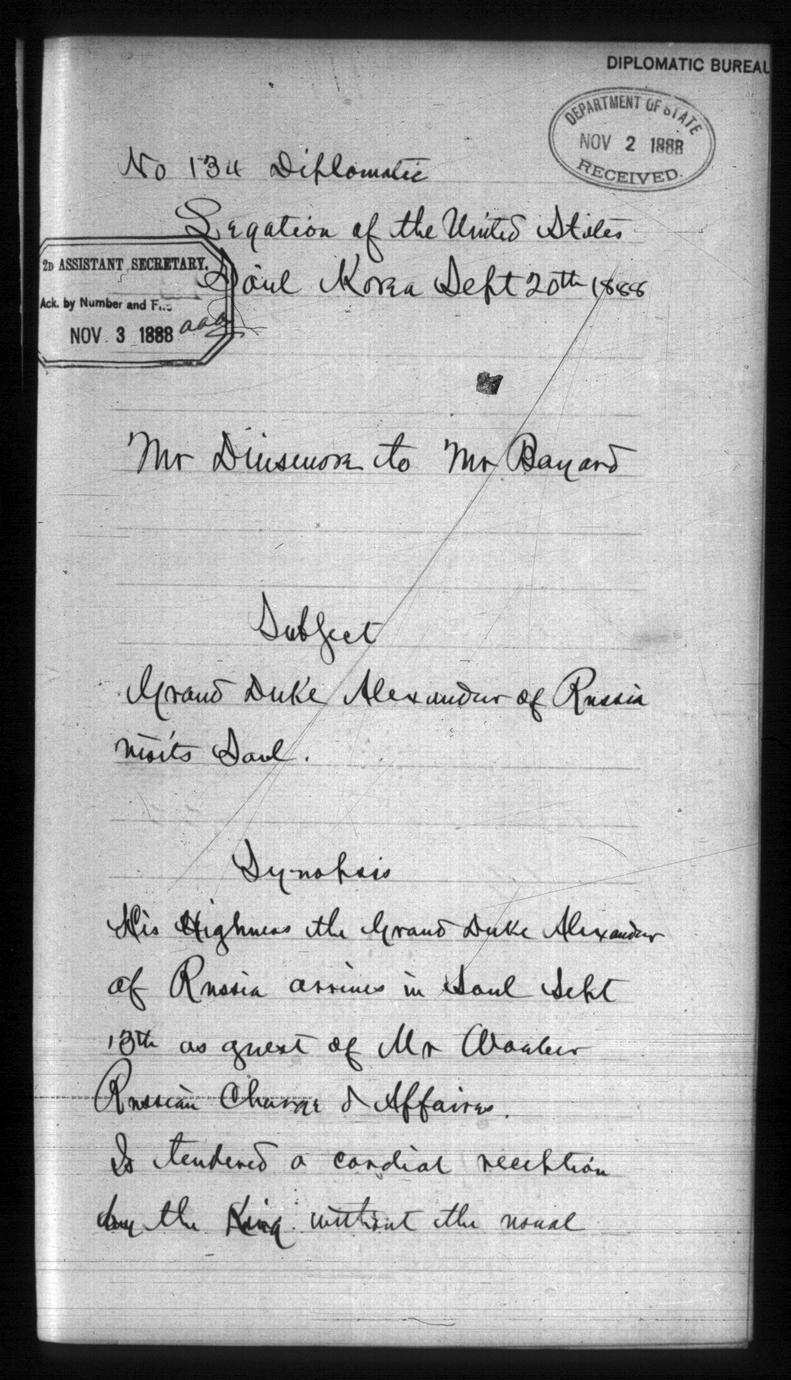 DIPLOMATIC BUREAU
DEPARTMENT OF STATE
NOV 2 1888
RECEIVED.
No 134 Diplomatic
Legation of the United States
Söul Korea Sept 20th 1888
2D ASSISTANT SECRETARY.
Ack. by Number and File
NOV 3 1888
aaa
Mr Dinsmore to Mr Bayard
Subject
Grand Duke Alexander of Russia
visits Soul.
Synopsis
His Highness the Grand Duke Alexander
of Russia arrives in Soul Sept
13th as guest of Mr Waeber
Russian Charge d Affaires.
Is tendered a cordial reception
by the King without the usual